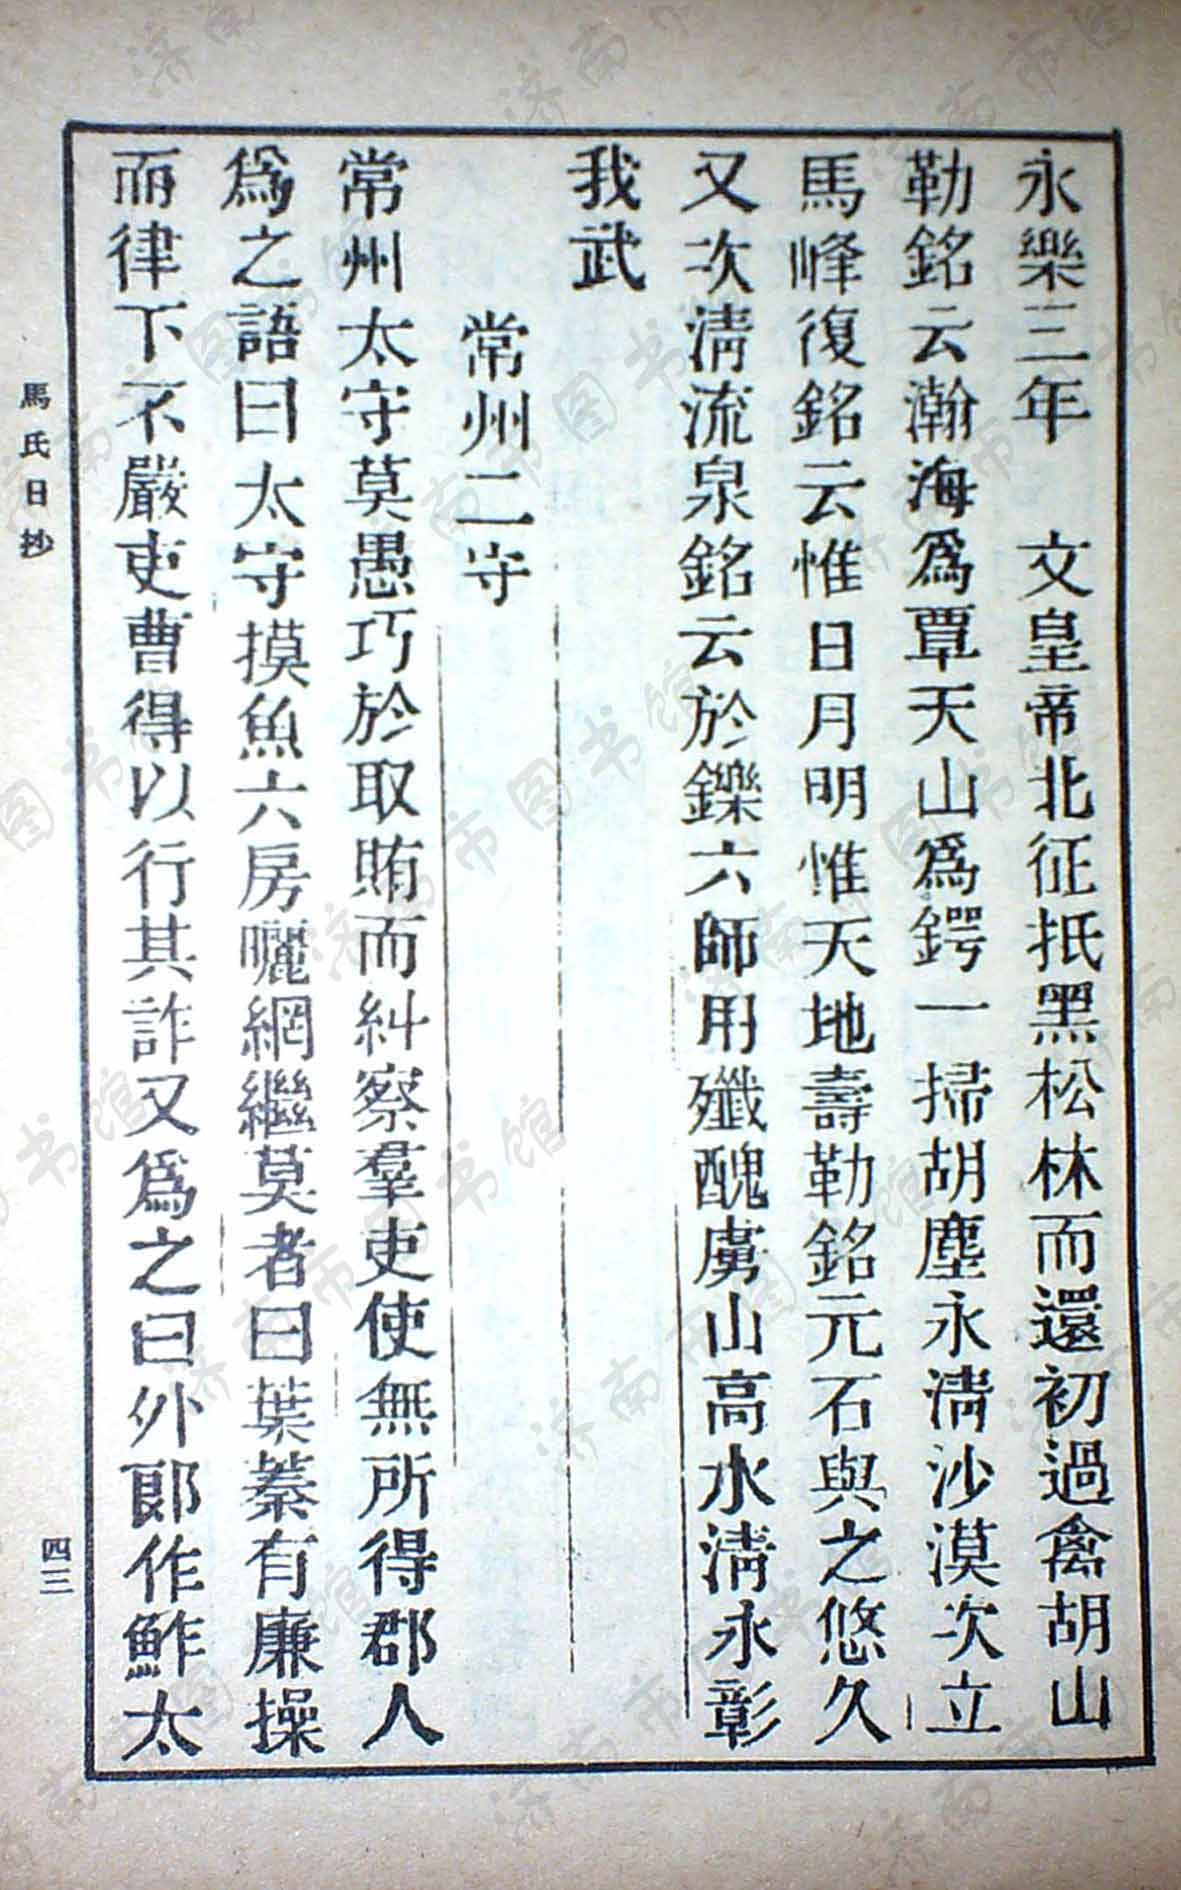 永樂三年　文皇帝北征抵黑松林而還初過禽胡山
勒銘云瀚海爲覃天山爲鍔一掃胡塵永清沙漠次立
馬峰復銘云惟日月明惟天地壽勒銘元石與之悠久
又次清流泉銘云於鑠六師用殲醜虜山高水清永彰
我武
常州二守
常州太守莫愚巧於取賄而糾察羣吏使無所得郡人
爲之語曰太守摸魚六房曬網繼莫者曰葉蓁有廉操
而律下不嚴吏曹得以行其詐又爲之曰外郎作鮓太
馬氏日抄
四三
济南市图书馆